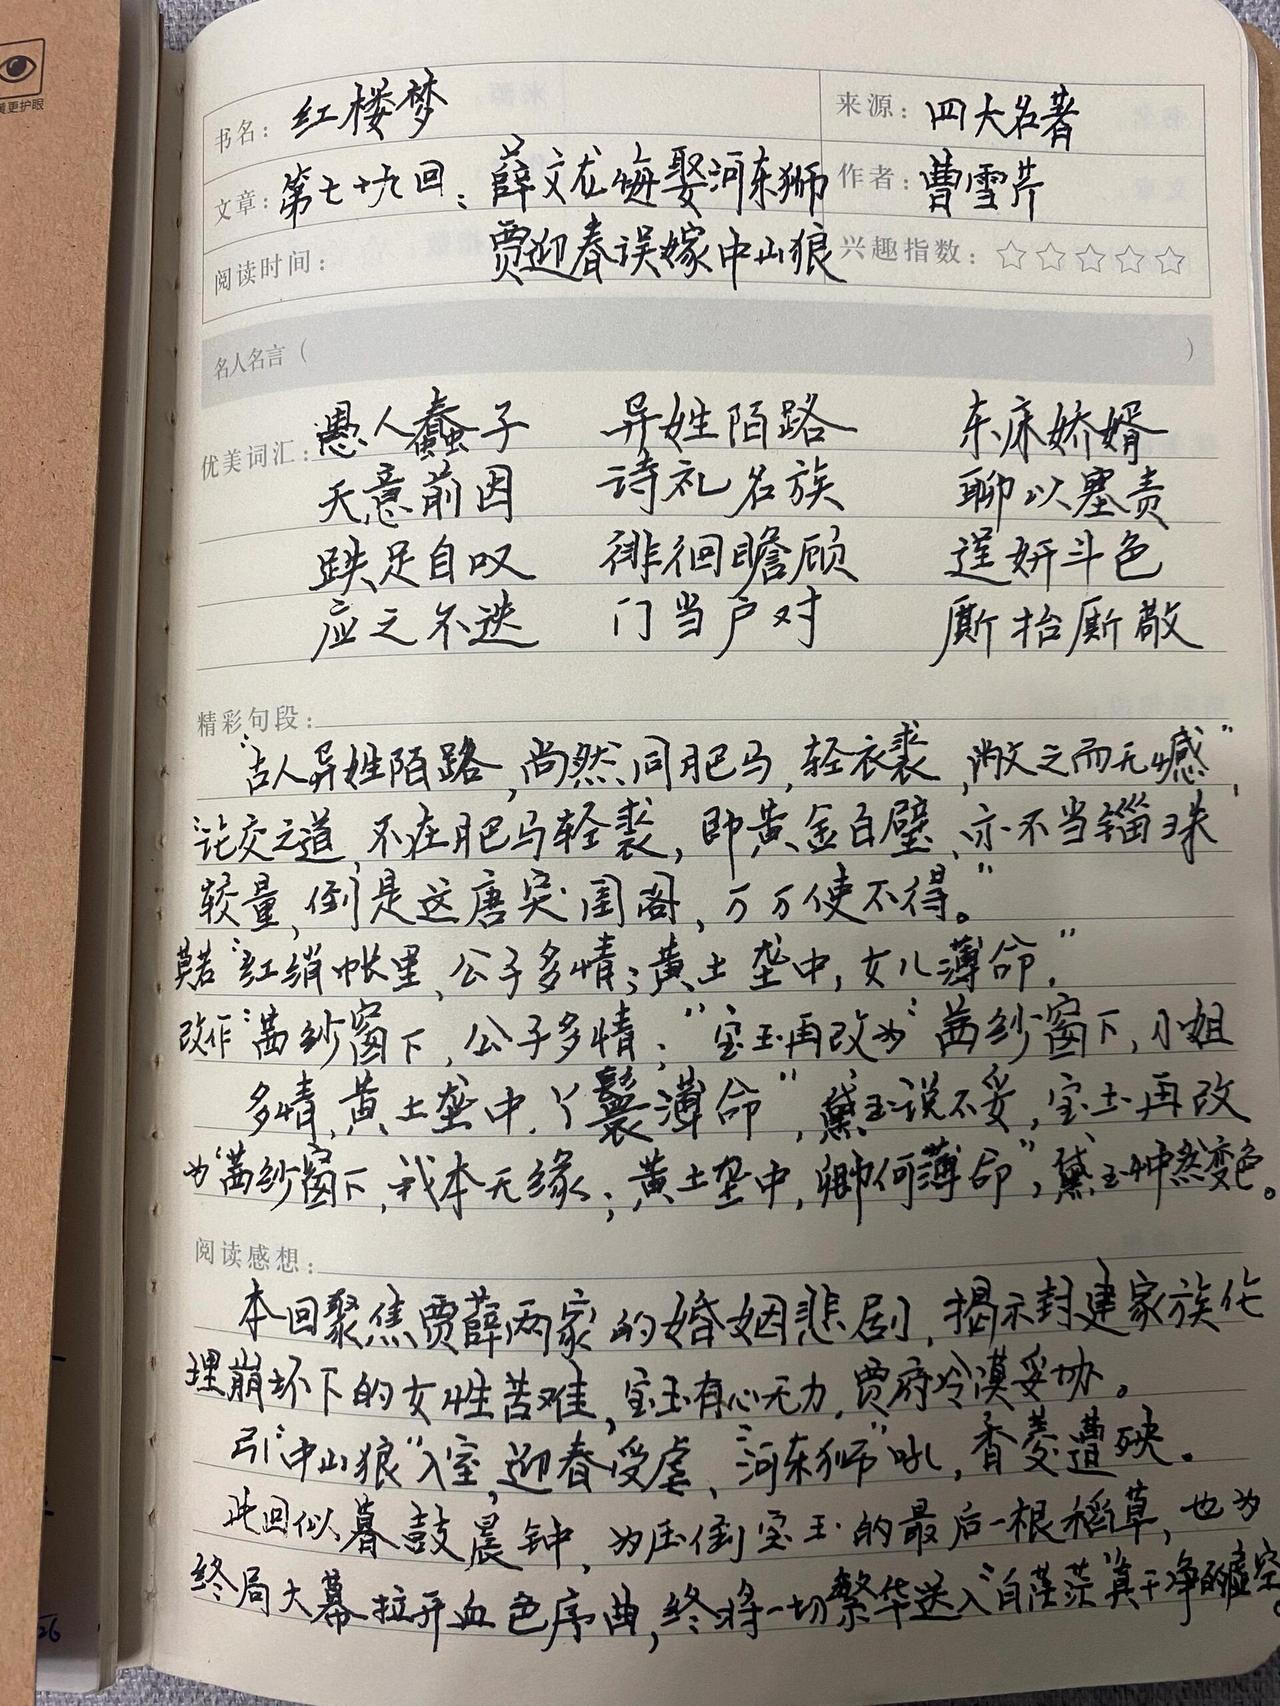 更护眼
书名：红楼梦 来源：四大名著
文章：第七十九回：薛文龙悔娶河东狮 作者：曹雪芹
阅读时间： 贾迎春误嫁中山狼 兴趣指数：☆☆☆☆☆
名人名言（ ）
优美词汇：愚人蠢子 异姓陌路 东床娇婿
天意前因 诗礼名族 聊以塞责
跌足自叹 徘徊瞻顾 逞妍斗色
应之不迭 门当户对 厮抬厮敬
精彩句段：
“古人异姓陌路，尚然同肥马，轻衣裘，敝之而无憾”，
“论交之道，不在肥马轻裘，即黄金白璧，亦不当锱珠
较量，倒是这唐突闺阁，万万使不得。”
莫若“红绡帐里，公子多情；黄土垄中，女儿薄命”，
改作“茜纱窗下，公子多情；”宝玉再改为“茜纱窗下，小姐
多情，黄土垄中，丫鬟薄命”，黛玉说不妥，宝玉再改
为“茜纱窗下，我本无缘；黄土垄中，卿何薄命”，黛玉忡然变色。
阅读感想：
本回聚焦贾薛两家的婚姻悲剧，揭示封建家族伦
理崩坏下的女性苦难，宝玉有心无力，贾府冷漠妥协。
引“中山狼”入室，迎春受虐、“河东狮”吼，香菱遭殃。
此回似暮鼓晨钟，为压倒宝玉的最后一根稻草，也为
终局大幕拉开血色序曲，终将一切繁华送入“白茫茫”真干净的虚空。
26